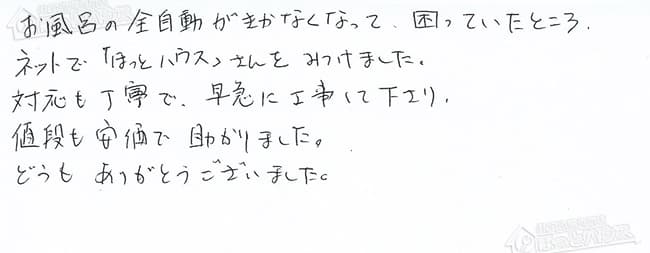 お風呂の全自動がきかなくなって、困っていたところ、
ネットで「ほっとハウス」さんをみつけました。
対応も丁寧で、早急に工事して下さり、
値段も安価で助かりました。
どうもありがとうございました。
ほっとハウス